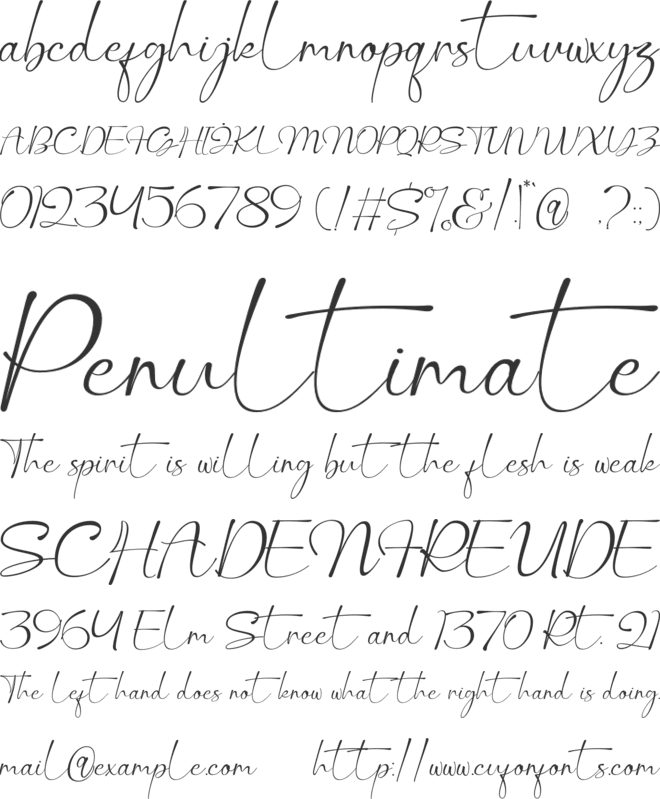 abcdefghijklmnopqrstuvwxyz
ABCDEFGHIJKLMNOPQRSTUVWXYZ
0123456789 (!#$%&/|*`@ ,?:;)
Penultimate
The spirit is willing but the flesh is weak
SCHADENFREUDE
3964 Elm Street and 1370 Rt. 21
The left hand does not know what the right hand is doing.
mail@example.com http://www.cufonfonts.com